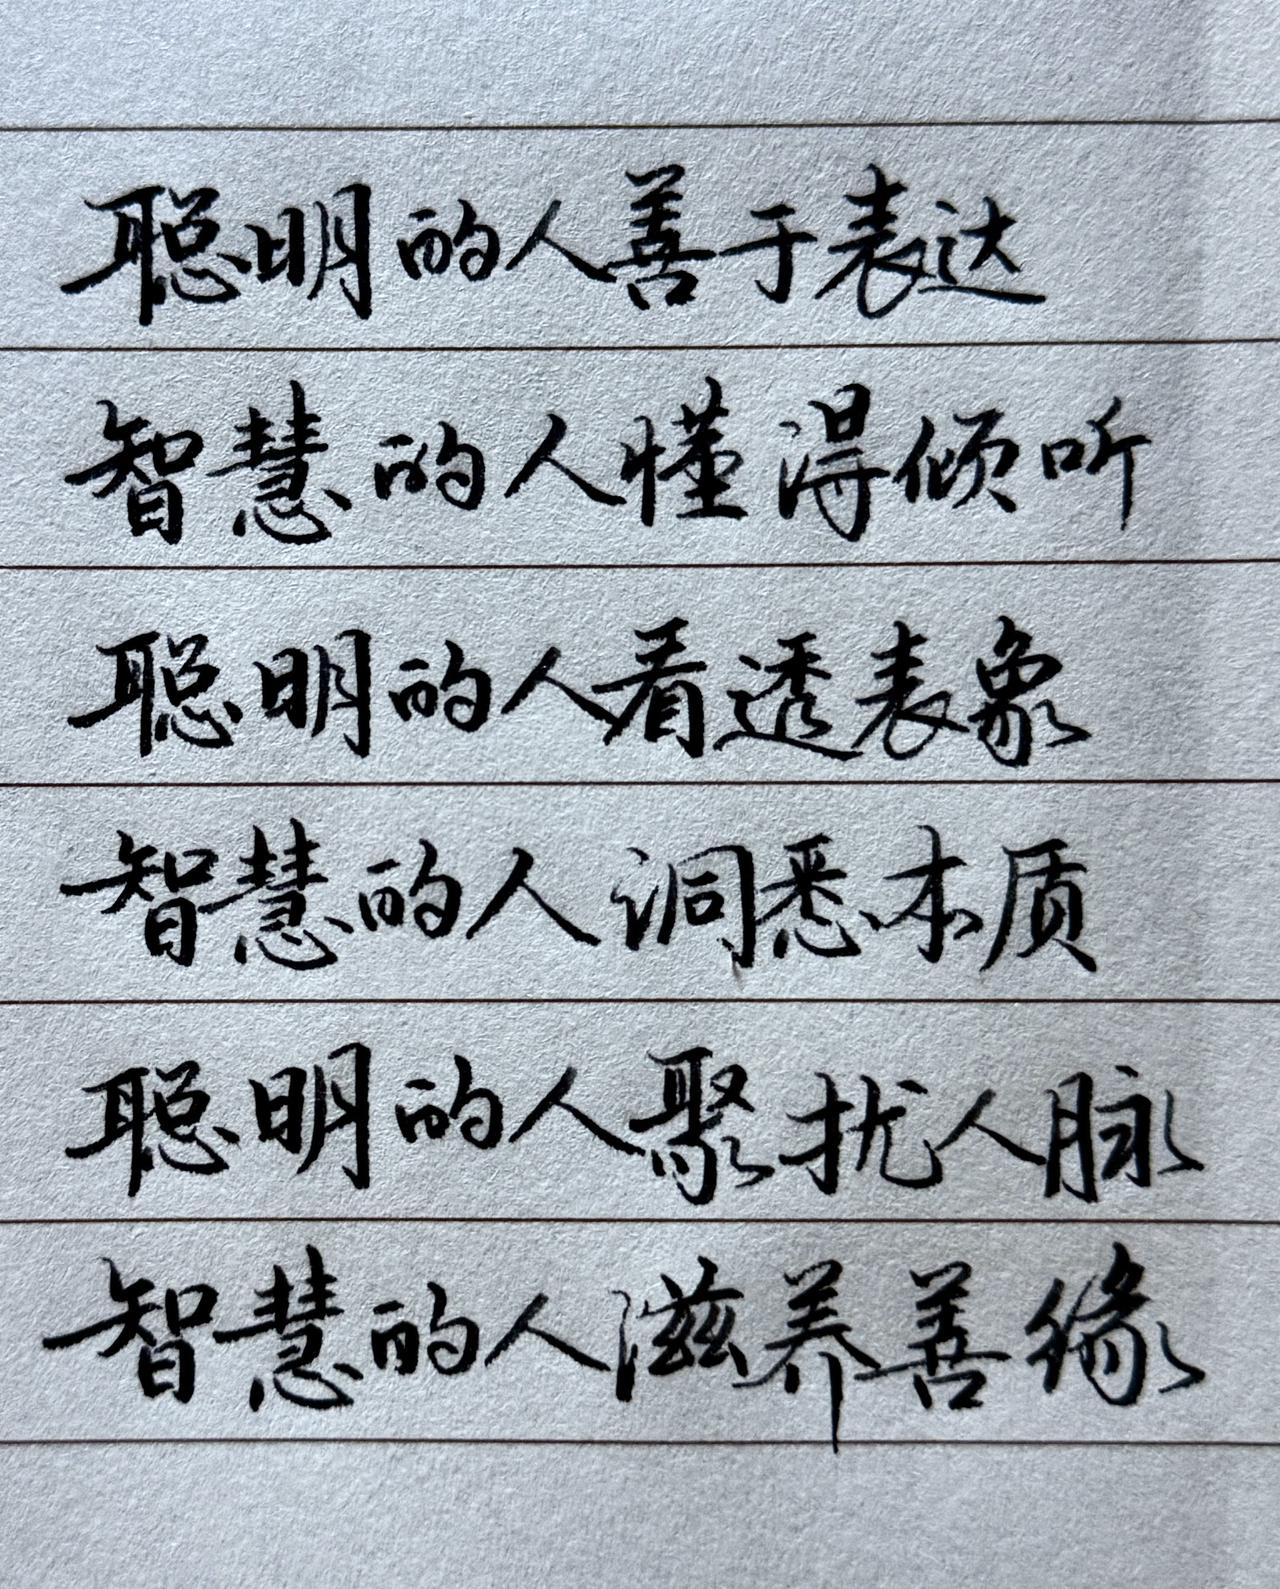 聪明的人善于表达
智慧的人懂得倾听
聪明的人看透表象
智慧的人洞悉本质
聪明的人聚扰人脉
智慧的人滋养善缘